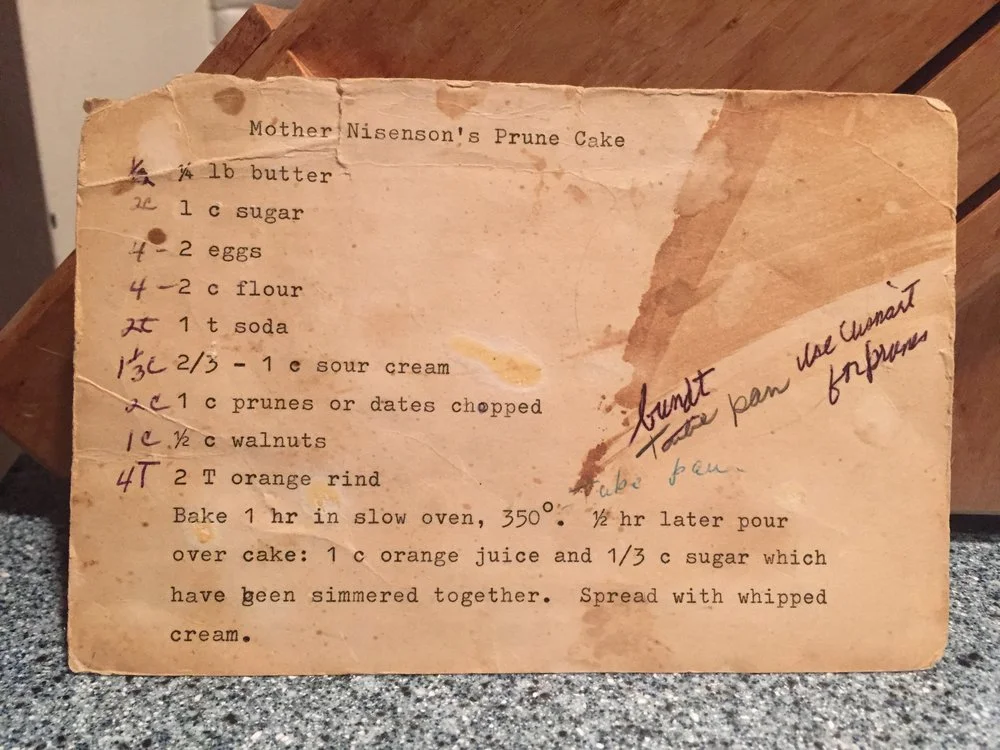 Mother Nisenson's Prune Cake
½ ¼ lb butter
2c 1 c sugar
4 - 2 eggs
4 - 2 c flour
2t 1 t soda
1⅓C 2/3 - 1 c sour cream
2C 1 c prunes or dates chopped
1C ½ c walnuts
4T 2 T orange rind
bundt
pan
use Cuisinart
for prunes
Tube pan.
Bake 1 hr in slow oven, 350°. ½ hr later pour
over cake: 1 c orange juice and 1/3 c sugar which
have been simmered together. Spread with whipped
cream.